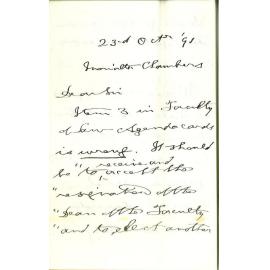 23rd Octr '91
Chambers
Dear Sir
Item 3 in Faculty
of Law Agenda cards
is wrong. It should
" receive and
be to accept the
"resignation of the
"Dean of the Faculty
"and to elect another